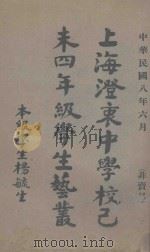 中華民國八年六月
上海澄衷中學校己
未四年級學生藝叢
本級學生楊毓生
非賣品